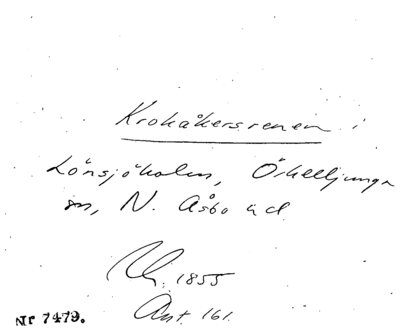 Krokåkersrenen i
Lönsjöholm, Örkelljunga
sn, N. Åsbo hd
Rh. 1855
Ant. 161.
Nr 7479.